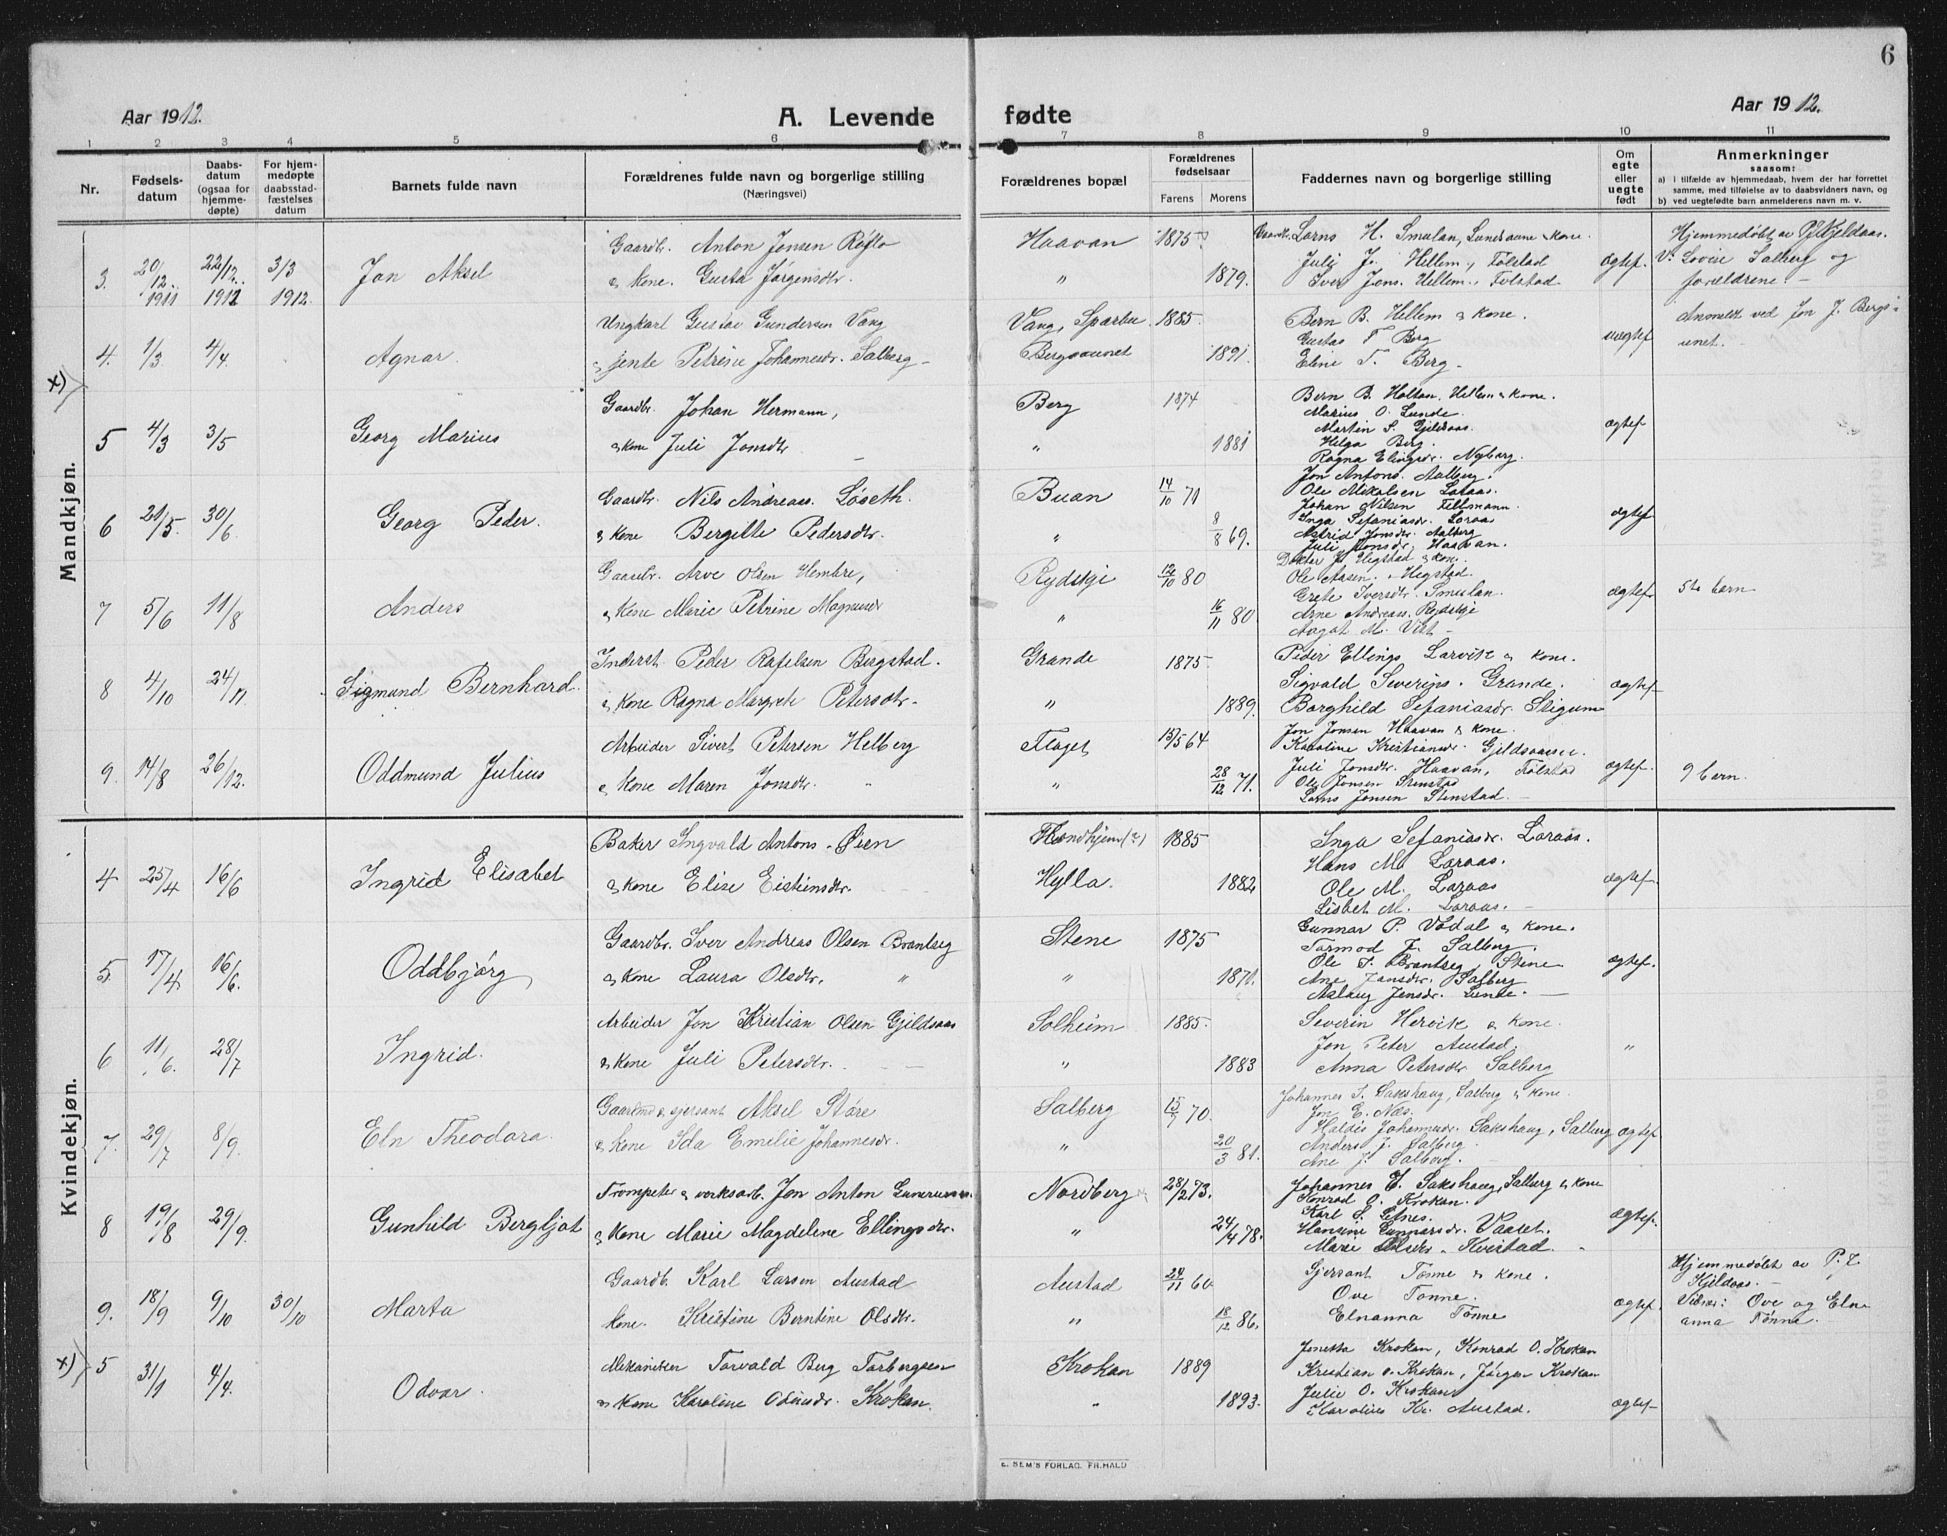 6
Aar 1912. A. Levende fødte Aar 1912.
1 2 3 4 5 6 7 8 9 10 11
Nr.
Fødsels-
datum
Daabs-
datum
(ogsaa for
hjemme-
døpte)
For hjem-
medøpte
daabsstad-
fæstelses
datum
Barnets fulde navn
Forældrenes fulde navn og borgerlige stilling
(Næringsvei)
Forældrenes bopæl
Forældrenes
fødselsaar
Farens Morens
Faddernes navn og borgerlige stilling
Om
egte
eller
uegte
født
Anmerkninger
saasom:
a) i tilfælde av hjemmedaab, hvem der har forrettet
samme, med tilføielse av to daabsvidners navn, og
b) ved uegtefødte barn anmelderens navn m. v.
Mandkjøn.
3. 20/12. 1911 22/12. 1911 3/3 1912. Jon Aksel
Gaardbr. Anton Jensen Røflo
& kone. Gusta Jørgensdtr.
Haavan 1875
" 1879.
Gaardbr. Lorns H. Smulan, Lundsaune & kone.
Juli J. Hellem, Tolstad
Iver Jens. Hellem, Tolstad.
ægtef.
Hjemmedøbt av P. Kjeldaas.
V. Lovise Salberg og
forældrene. -
x) 4. 1/3 4/4. Agnar.
Ungkarl Gustav Gundersen Vang
& jente Petrine Johannesdr. Salberg -
Vang, Sparbu. 1885.
Bergsaunet 1891.
Bern B. Hellem & kone.
Gustav T. Berg
Eline T. Berg.
uægtef
Anmeldt ved Jon J. Bergs-
unet.
5 4/3 3/5 Georg Marius
Gaardbr. Johan Hermann,
& kone Juli Jonsdtr
Berg 1874
" 1881
Bern B. Holtan, Hellem & kone.
Marius O. Lunde.
Martin S. Gjeldsaas.
Helga Berg.
Ragna Elingsdr. Nyborg.
ægtef
6 21/5. 30/6 Georg Peder.
Gaardbr. Nils Andreas. Løseth.
& kone Bergitte Pedersdtr.
Buan 14/10 71
" 8/8 69.
Jon Antons. Aalberg.
Ole Mikalsen Loraas.
Johan Nilsen Tellmann.
Inga Sefaniasdr. Loraas
Astrid Jonsdtr. Aalberg
Juli Jonsdr. Haavan.
ægtef
7 5/6 11/8 Anders
Gaardbr. Arve Olsen Hembre,
& kone Marie Petrine Magnusdr
Rydskje 12/10 80
" 16/11 80
Doktor J. Hegstad & kone.
Ole Aasen. Hegstad.
Grete Iversdtr. Smulan.
Arne Andreass. Rydskje
Aagot M. Vist -
ægtef 5te barn
8 4/10 24/11 Sigmund Bernhard.
Inderst Peder Rafelsen Bergstad.
& kone Ragna Margrete Petersdtr.
Grande 1875.
" 1889.
Peder Ellings. Larvik & kone.
Sigvald Severins. Grande.
Borghild Sefaniasdr. Stigum
ægtef
9. 14/8 26/12. Oddmund Julius
Arbeider Sivert Petersen Helberg
& kone Maren Jonsdtr. "
Flaget 15/5 64
" 28/12 71.
Jon Jonsen Haavan & kone.
Karoline Kristiansdr. Gjildsaasen.
Juli Jonsdtr. Haavan, Tolstad
Ole Jonsen Stenstad
Lorns Jonsen Stenstad. -
ægtef 9 barn.
Kvindekjøn.
4 25/4 16/6 Ingrid Elisabet
Baker Ingvald Antons. Øien
& kone Elise Eistensdr.
Trondhjem(?) 1885
Hylla. 1882
Inga Sefaniasdr. Loraas.
Hans M. Loraas.
Ole M. Loraas
Lisbet M. Loraas. -
ægtef
5. 17/4. 16/6. Oddbjørg
Gaardbr. Iver Andreas Olsen Brantseg
& kone Laura Olsdtr. "
Stene 1875
" 1871.
Gunnar P. Vodal & kone.
Tormod J. Salberg.
Ole J. Brantseg, Stene
Ane Jansdtr. Salberg
Aslaug Jensdr. Lunde. -
ægtef.
6 11/6. 28/7 Ingrid.
Arbeider Jon Kristian Olsen Gjildsaas
& kone Juli Petersdtr.
Solheim 1885.
" 1883
Severin Hervik & kone.
Jon Peter Austad.
Anna Petersdtr Salberg
"
7. 29/7 8/9. Eln Theodora.
Gaardmd & sjersant Aksel Støre
& kone Ida Emelie Johannesdr.
Salberg 15/7 70
" 20/3 81.
Johannes S. Sakshaug, Salberg & kone.
Jon E. Næs.
Haldis Johannesdr. Sakshaug, Salberg
Anders J. Salberg
Ane J. Salberg.
ægtef
8 19/8 29/9. Gunhild Bergljot
Trompeter & verksarb. Jon Anton Gunerius.
& kone Marie Magdelene Ellingsdtr.
Nordberg 28/2 73.
" 24/4 78.
Johannes E. Sakshaug, Salberg & kone
Konrad O. Krokan.
Karl S. Letnes.
Hansine Gunnarsdr. Vaatet.
Marie Olsdtr. Kvistad.
ægtef.
9. 18/9 9/10 30/10 Marta
Gaardb. Karl Larsen Austad
kone. Kristine Berntine Olsdtr.
Austad 24/11 60
" 18/12 86.
Sjersant Tønne & kone.
Ove Tønne.
Elnanna Tønne
ægtef.
Hjemmedøbt av P. E.
Kjeldaas. -
Vidner: Ove og Eln-
anna Tønne.
x) 5 31/1 4/4. Odvar.
Mekaniken Torvald Berg Torbergsen
& kone Karoline Odinsdr. Krokan.
Krokan 1889
" 1893.
Jonetta Krokan, Konrad O. Krokan
Kristian O. Krokan, Jørgen Krokan
Julie O. Krokan
Karolius Kr. Austad.
ægtef
E. SEM'S FORLAG. FR.HALD